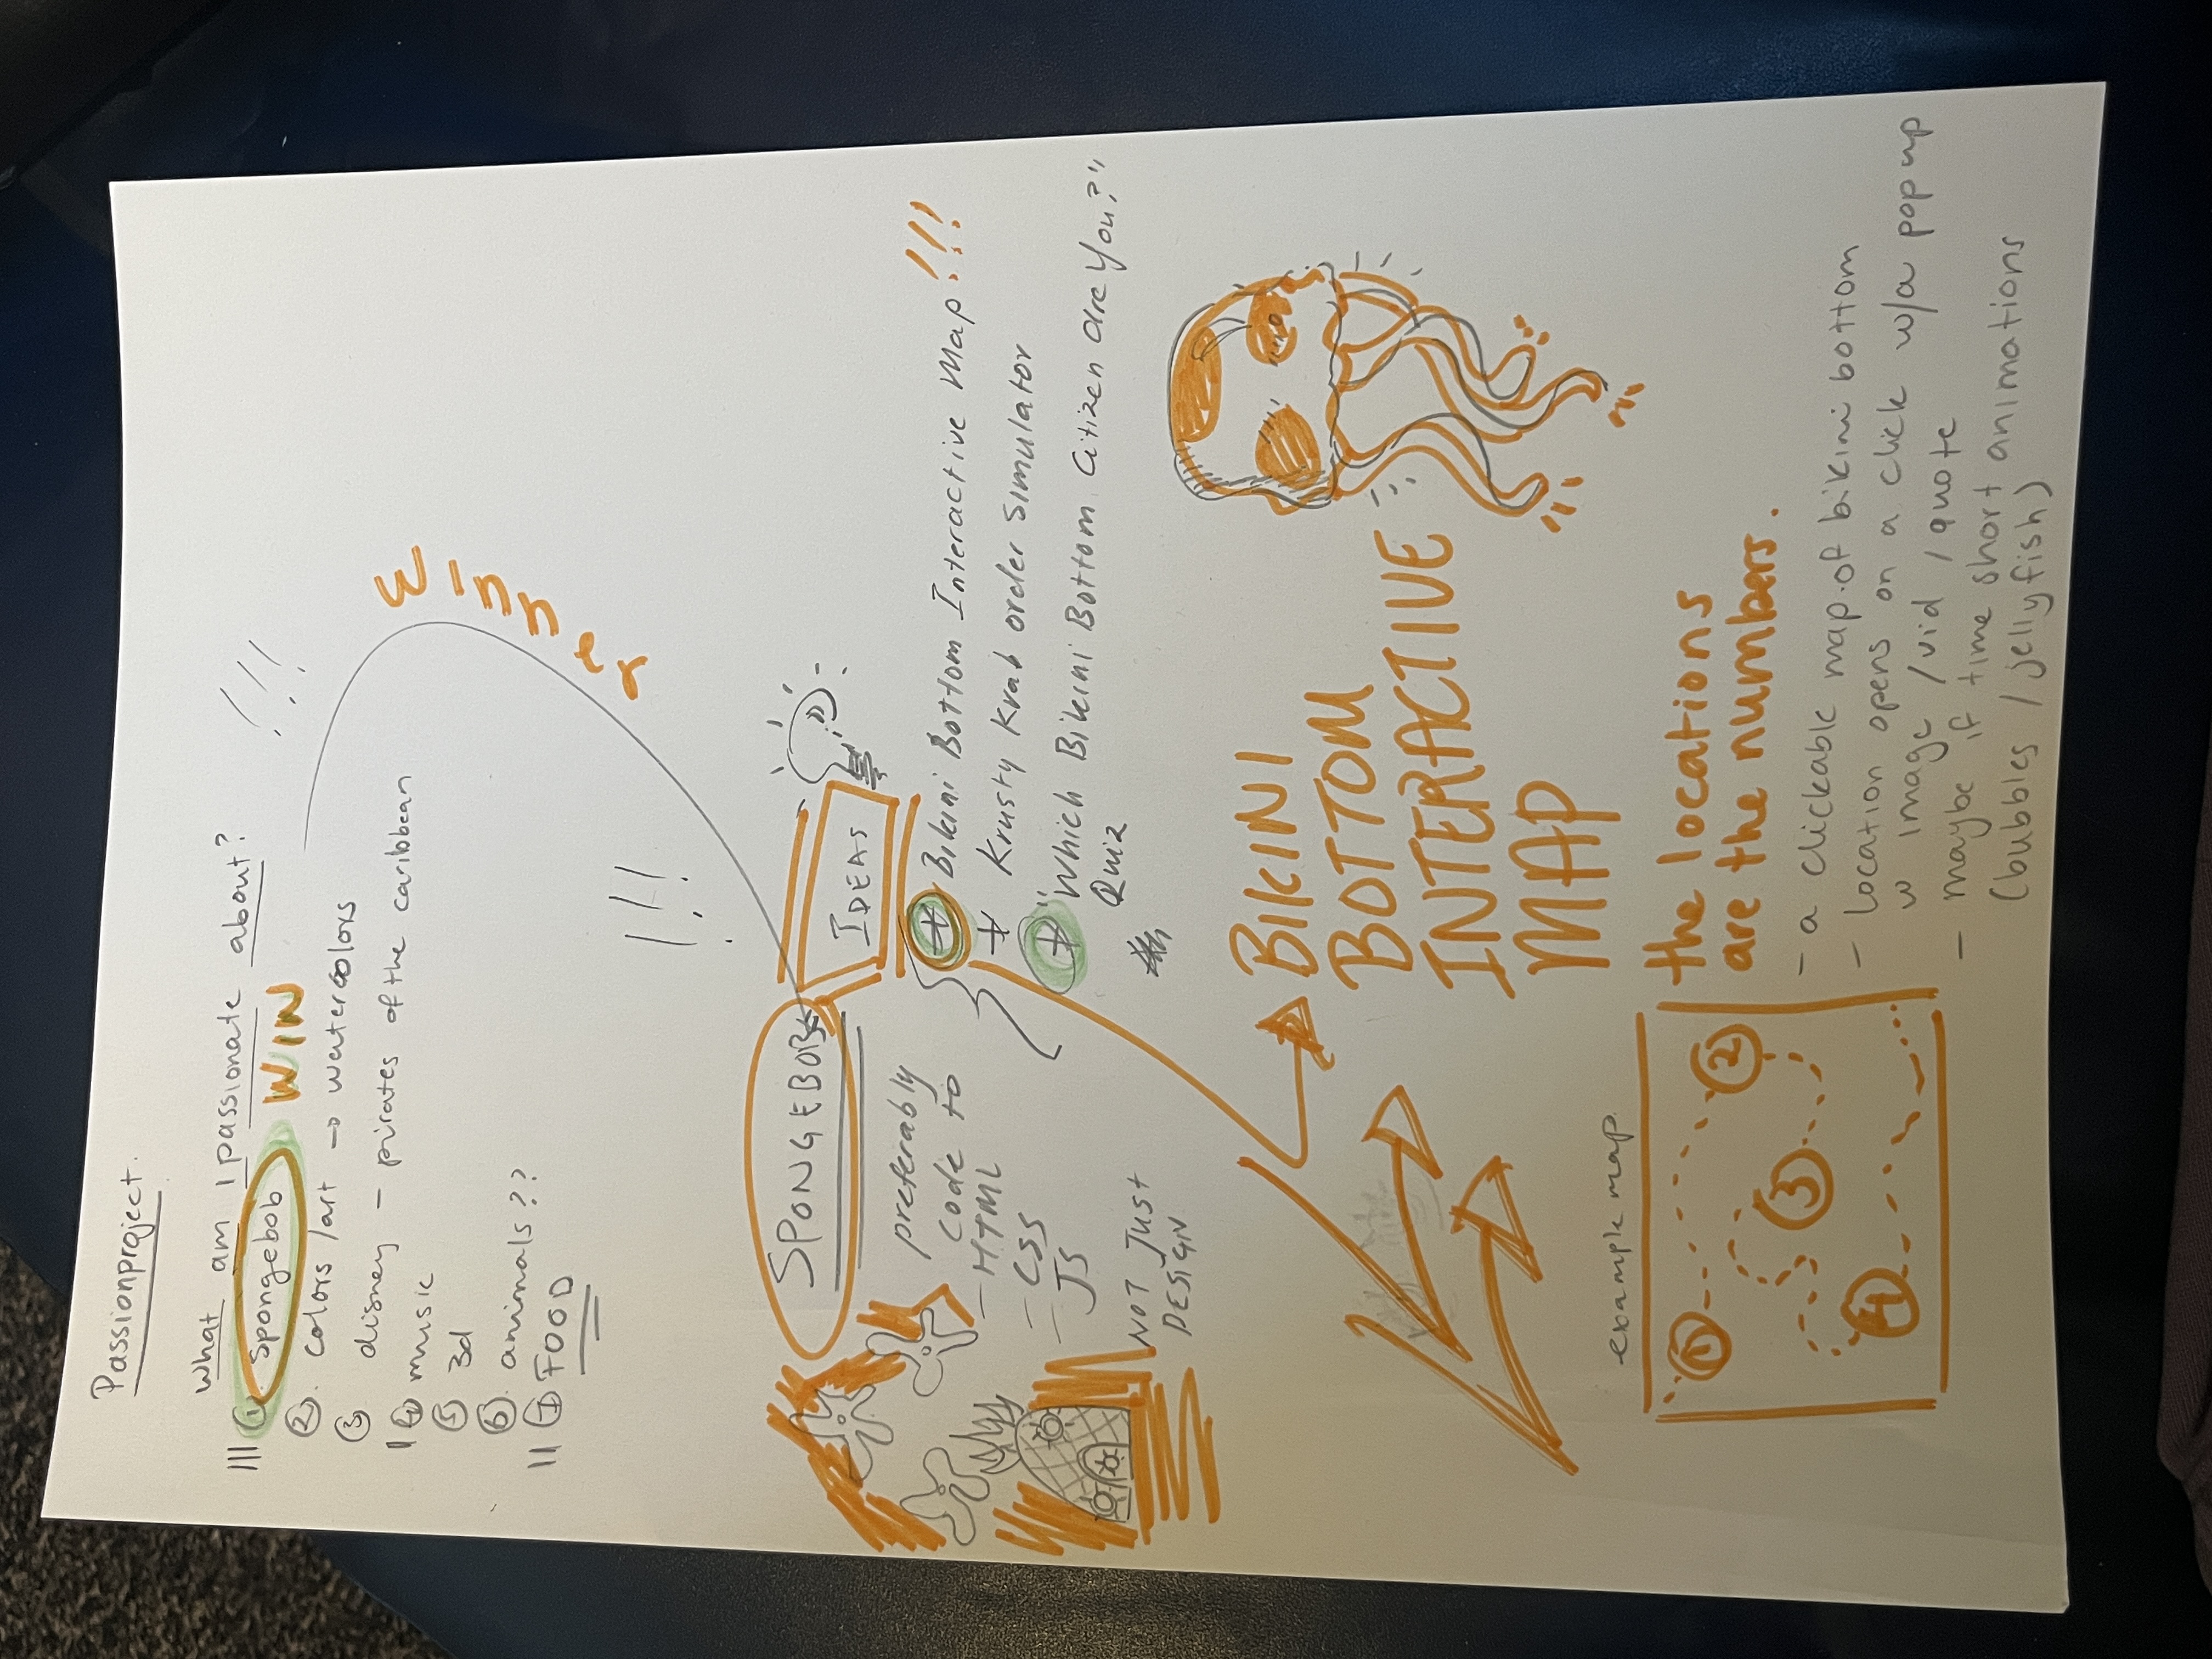 Passionproject.
What am I passionate about?
||| ① Spongebob WIN
② colors/art → watercolors
③ disney - pirates of the caribbean
| ④ music
⑤ 3d
⑥ animals??
|| ⑦ FOOD
!!!
winner
!!!
SPONGEBOB
IDEAS
+ Bikini Bottom Interactive Map!!!
+ Krusty Krab order Simulator
+ "Which Bikini Bottom Citizen are You?"
Quiz
preferably
code to
- HTML
- CSS
- JS
NOT JUST
DESIGN
BIKINI
BOTTOM
INTERACTIVE
MAP
example map
1
2
3
4
the locations
are the numbers.
- a clickable map of bikini bottom
- location opens on a click w/a pop up
w image /vid /quote
- maybe if time short animations
(bubbles /jellyfish)